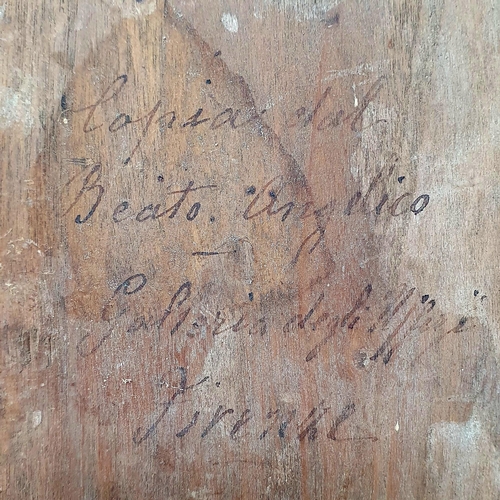 Copia dal
Beato. Angelico
—
Galleria degli Uffizi
Firenze